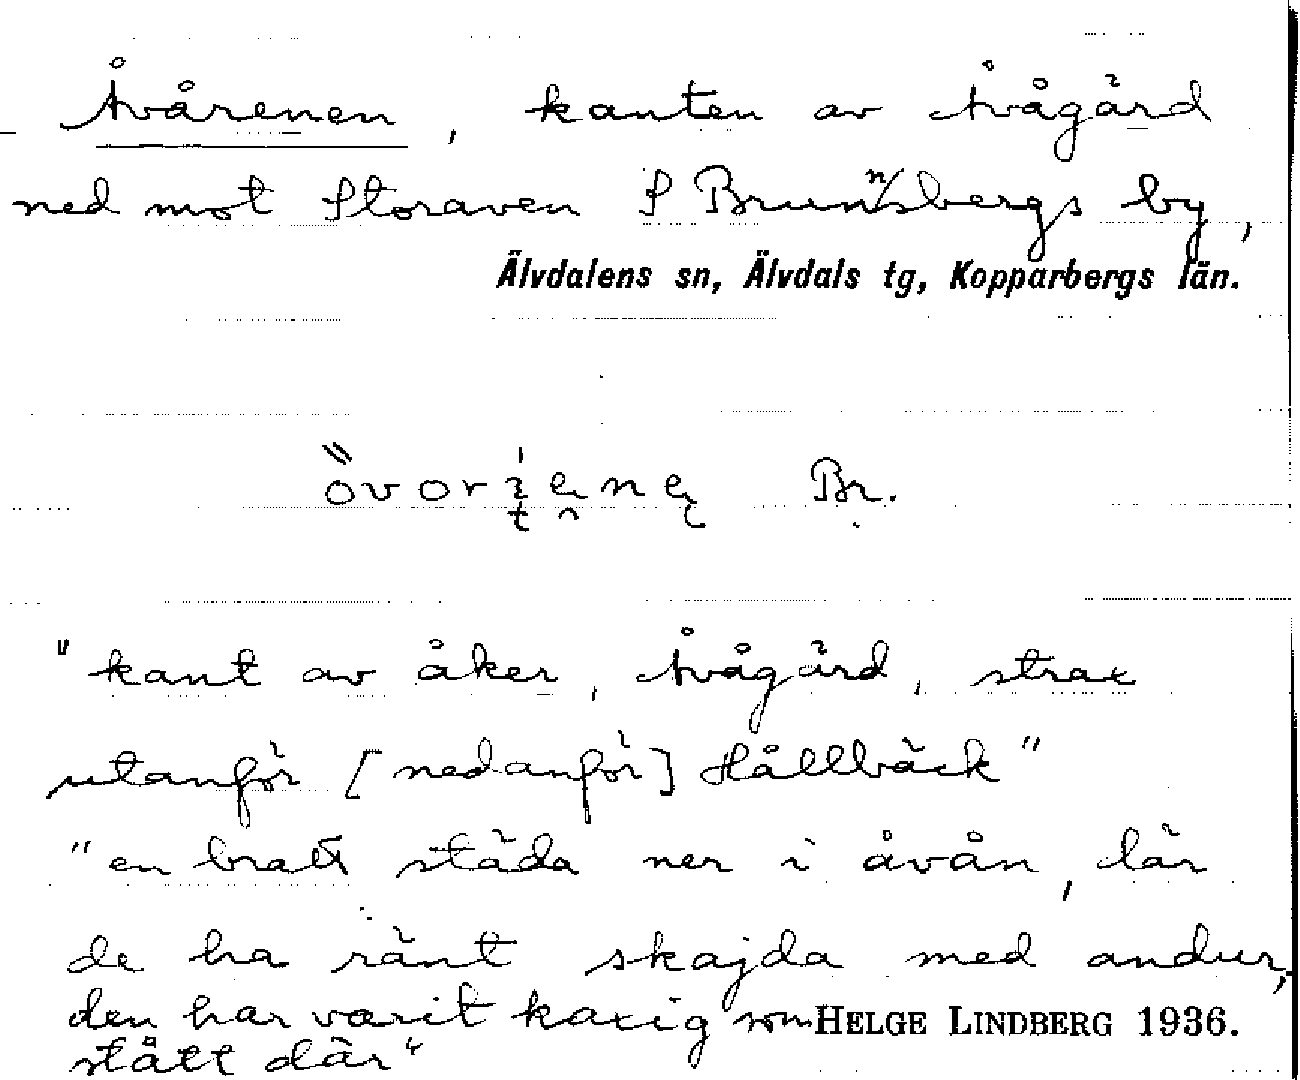 Åvårenen, kanten av Åvågärd
ned mot Storaven S Brunnsbergs by,
Älvdalens sn, Älvdals tg, Kopparbergs län.
Br.
"kant av åker, Åvågärd, strax
utanför [nedanför] Hållbäck"
"en bratt städa ner i åvån, lär
de ha ränt skajda med andur,
den har varit kaxig som HELGE LINDBERG 1936.
stått där"